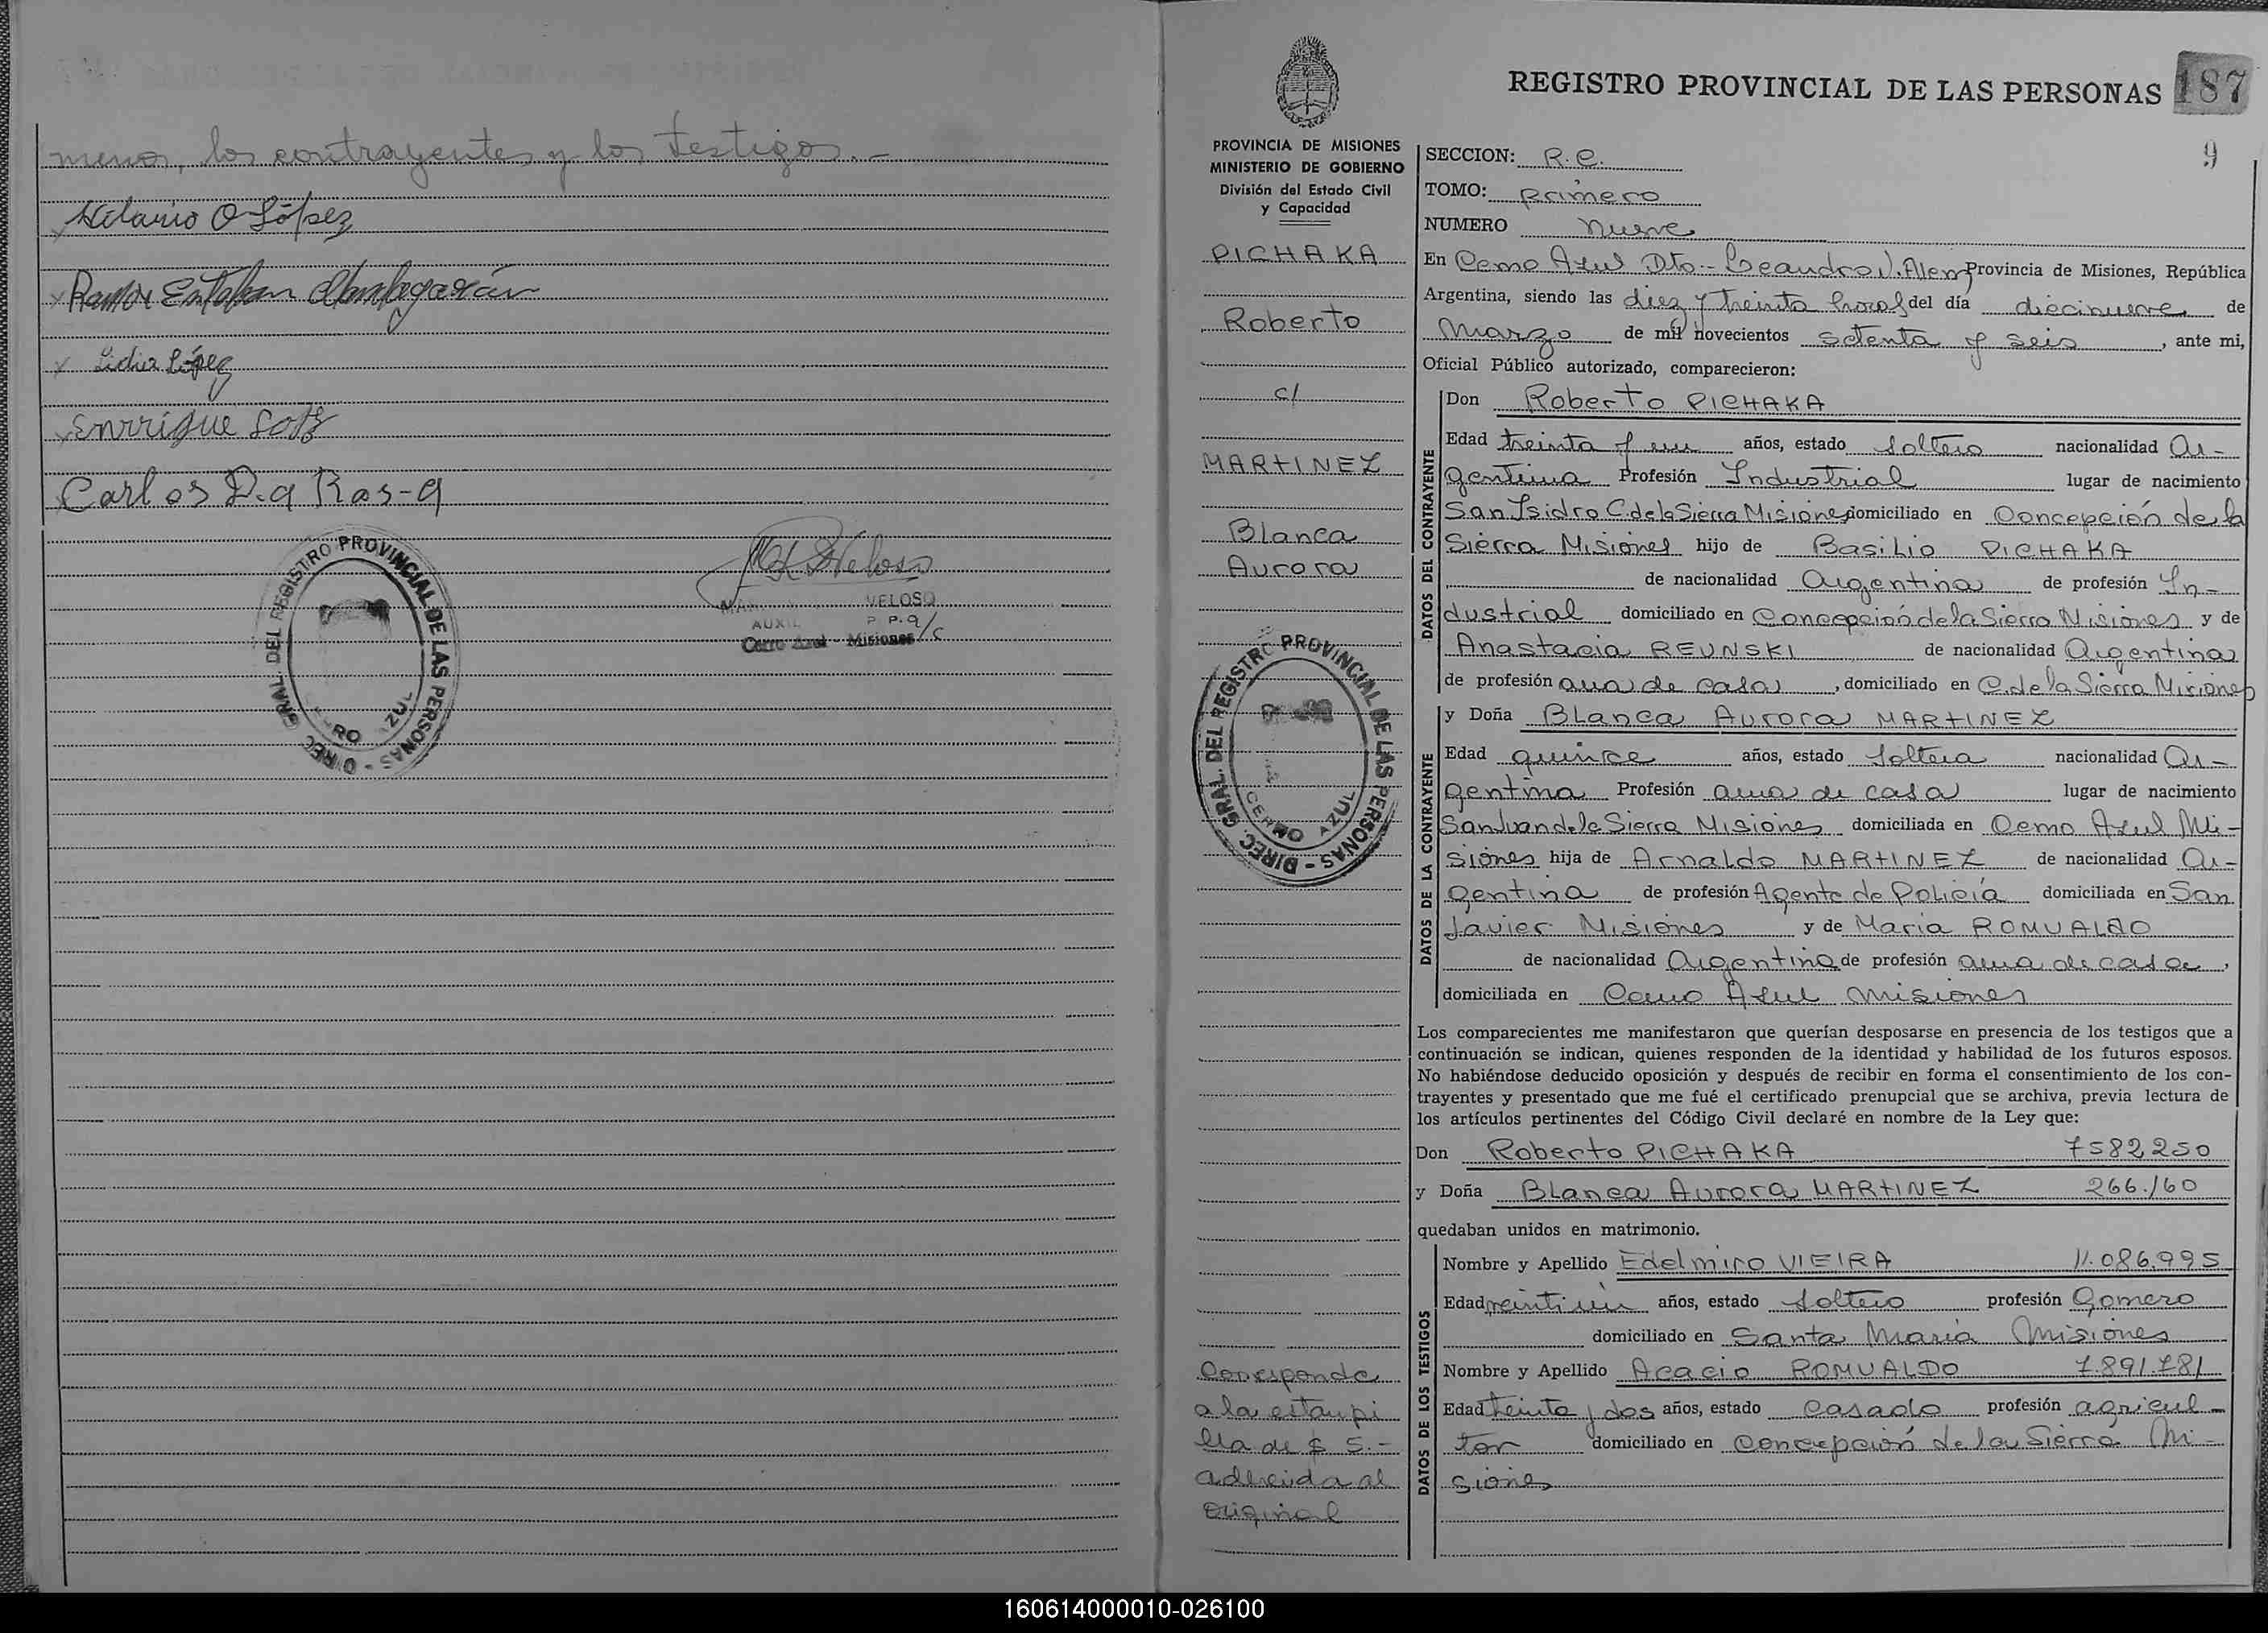 menor, los contrayentes y los testigos.-
Hilario O López
Ramón Esteban
Lidia López
Enrrique
Carlos D.a Ros-a
DIREC. GRAL. DEL REGISTRO PROVINCIAL DE LAS PERSONAS
CERRO AZUL
VELOSO
AUXIL
Cerro Azul - Misiones
REGISTRO PROVINCIAL DE LAS PERSONAS
187
9
PROVINCIA DE MISIONES
MINISTERIO DE GOBIERNO
División del Estado Civil
y Capacidad
PICHAKA
Roberto
c/
MARTINEZ
Blanca
Aurora
DIREC. GRAL. DEL REGISTRO PROVINCIAL DE LAS PERSONAS
CERRO AZUL
Corresponde
a la estampi
lla de $ 5.-
adherida al
original
SECCION: R.C.
TOMO: primero
NUMERO nueve
En Cerro Azul Dto.- Leandro N. Alem Provincia de Misiones, República
Argentina, siendo las diez y treinta horas del día diecinueve de
marzo de mil novecientos setenta y seis, ante mi,
Oficial Público autorizado, comparecieron:
DATOS DEL CONTRAYENTE
Don Roberto PICHAKA
Edad treinta y un años, estado soltero nacionalidad Ar-
gentina Profesión Industrial lugar de nacimiento
San Isidro C. de la Sierra Misiones domiciliado en Concepción de la
Sierra Misiones hijo de Basilio PICHAKA
de nacionalidad Argentina de profesión In-
dustrial domiciliado en Concepción de la Sierra Misiones y de
Anastacia REUNSKI de nacionalidad Argentina
de profesión ama de casa, domiciliado en C. de la Sierra Misiones
DATOS DE LA CONTRAYENTE
y Doña Blanca Aurora MARTINEZ
Edad quince años, estado soltera nacionalidad Ar-
gentina Profesión ama de casa lugar de nacimiento
San Juan de la Sierra Misiones domiciliada en Cerro Azul Mi-
siones hija de Arnaldo MARTINEZ de nacionalidad Ar-
gentina de profesión Agente de Policía domiciliada en San
Javier Misiones y de María ROMUALDO
de nacionalidad Argentina de profesión ama de casa,
domiciliada en Cerro Azul Misiones
Los comparecientes me manifestaron que querían desposarse en presencia de los testigos que a
continuación se indican, quienes responden de la identidad y habilidad de los futuros esposos.
No habiéndose deducido oposición y después de recibir en forma el consentimiento de los con-
trayentes y presentado que me fué el certificado prenupcial que se archiva, previa lectura de
los artículos pertinentes del Código Civil declaré en nombre de la Ley que:
Don Roberto PICHAKA 7582,250
y Doña Blanca Aurora MARTINEZ 266.160
quedaban unidos en matrimonio.
DATOS DE LOS TESTIGOS
Nombre y Apellido Edelmiro VIEIRA 11.086.995
Edad veintiún años, estado soltero profesión Gomero
domiciliado en Santa María Misiones
Nombre y Apellido Acacio ROMUALDO 7.891.781
Edad treinta y dos años, estado casado profesión agricul-
tor domiciliado en Concepción de la Sierra Mi-
siones
160614000010-026100